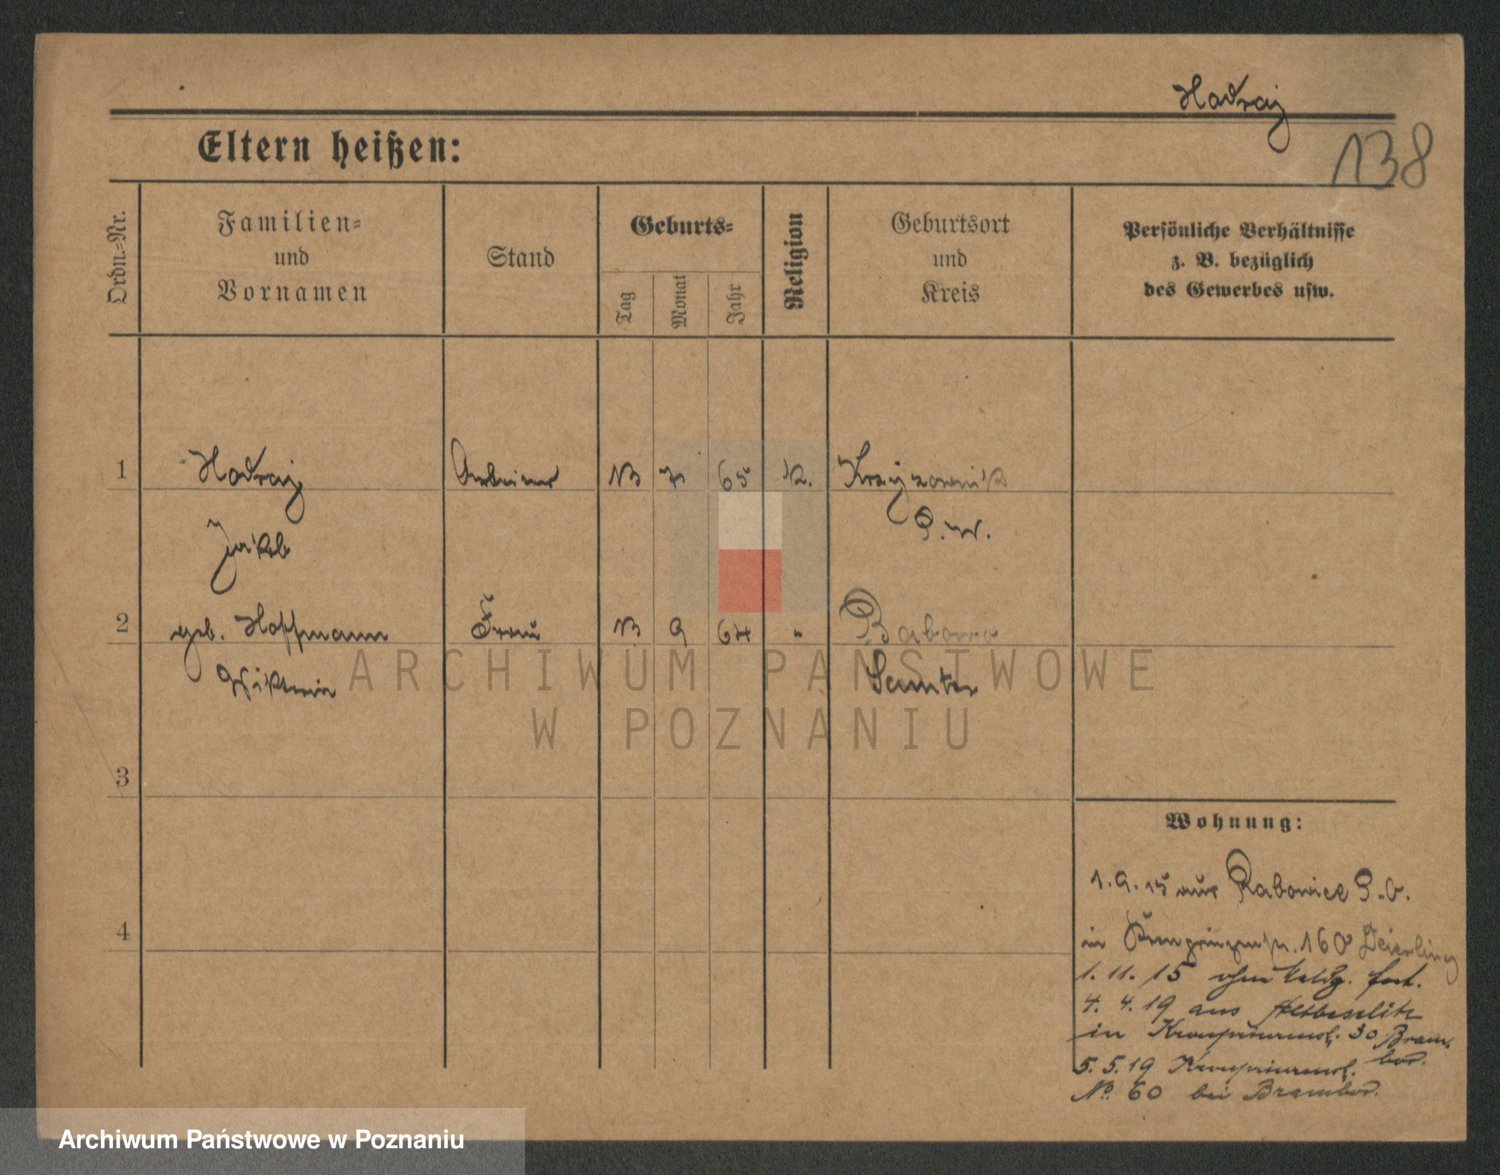 Hadraj
138
Eltern heißen:
Ordn.-Nr.
Familien-
und
Vornamen
Stand
Geburts-
Tag
Monat
Jahr
Religion
Geburtsort
und
Kreis
Persönliche Verhältnisse
z. B. bezüglich
des Gewerbes usw.
1 Hadraj Arbeiter 13 7 65 k.
Jakob P. W.
2 geb. Hoffmann Frau 13 9 64 "
Samter
3
4
Wohnung:
1. 9. 15 aus Rabowice P. O.
in 160
1. 11. 15 fort.
4. 4. 19 aus
in Kronprinzenst. 30 Bram-
bor.
5. 5. 19 Kronprinzenst.
No. 60 bei Brambor.
ARCHIWUM PAŃSTWOWE
W POZNANIU
Archiwum Państwowe w Poznaniu